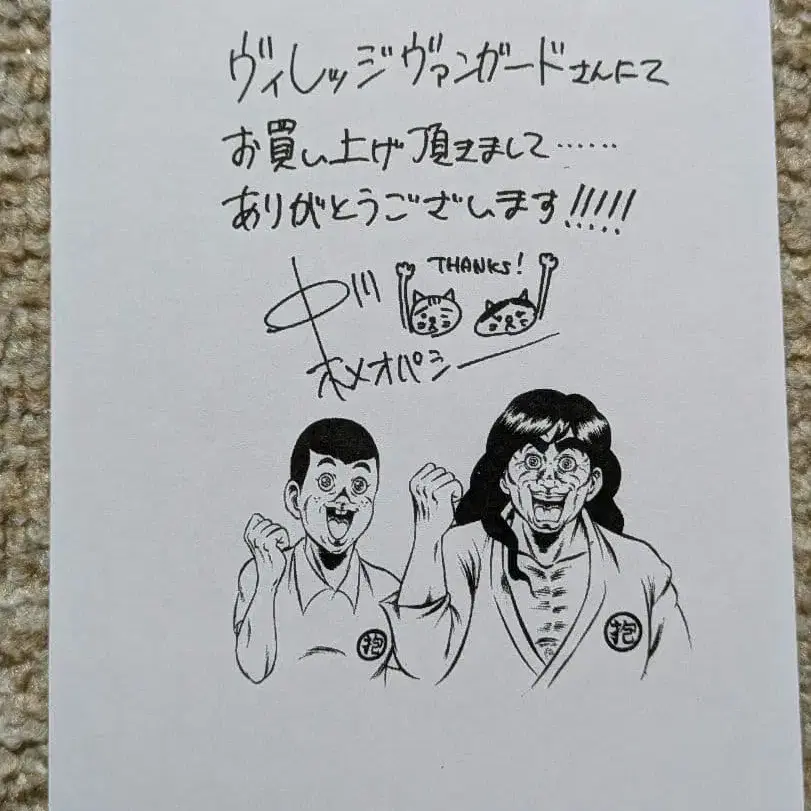 ヴィレッジヴァンガードさんにて
お買い上げ頂きまして……
ありがとうございます!!!!!
THANKS!
ホメオパシー
抱
抱